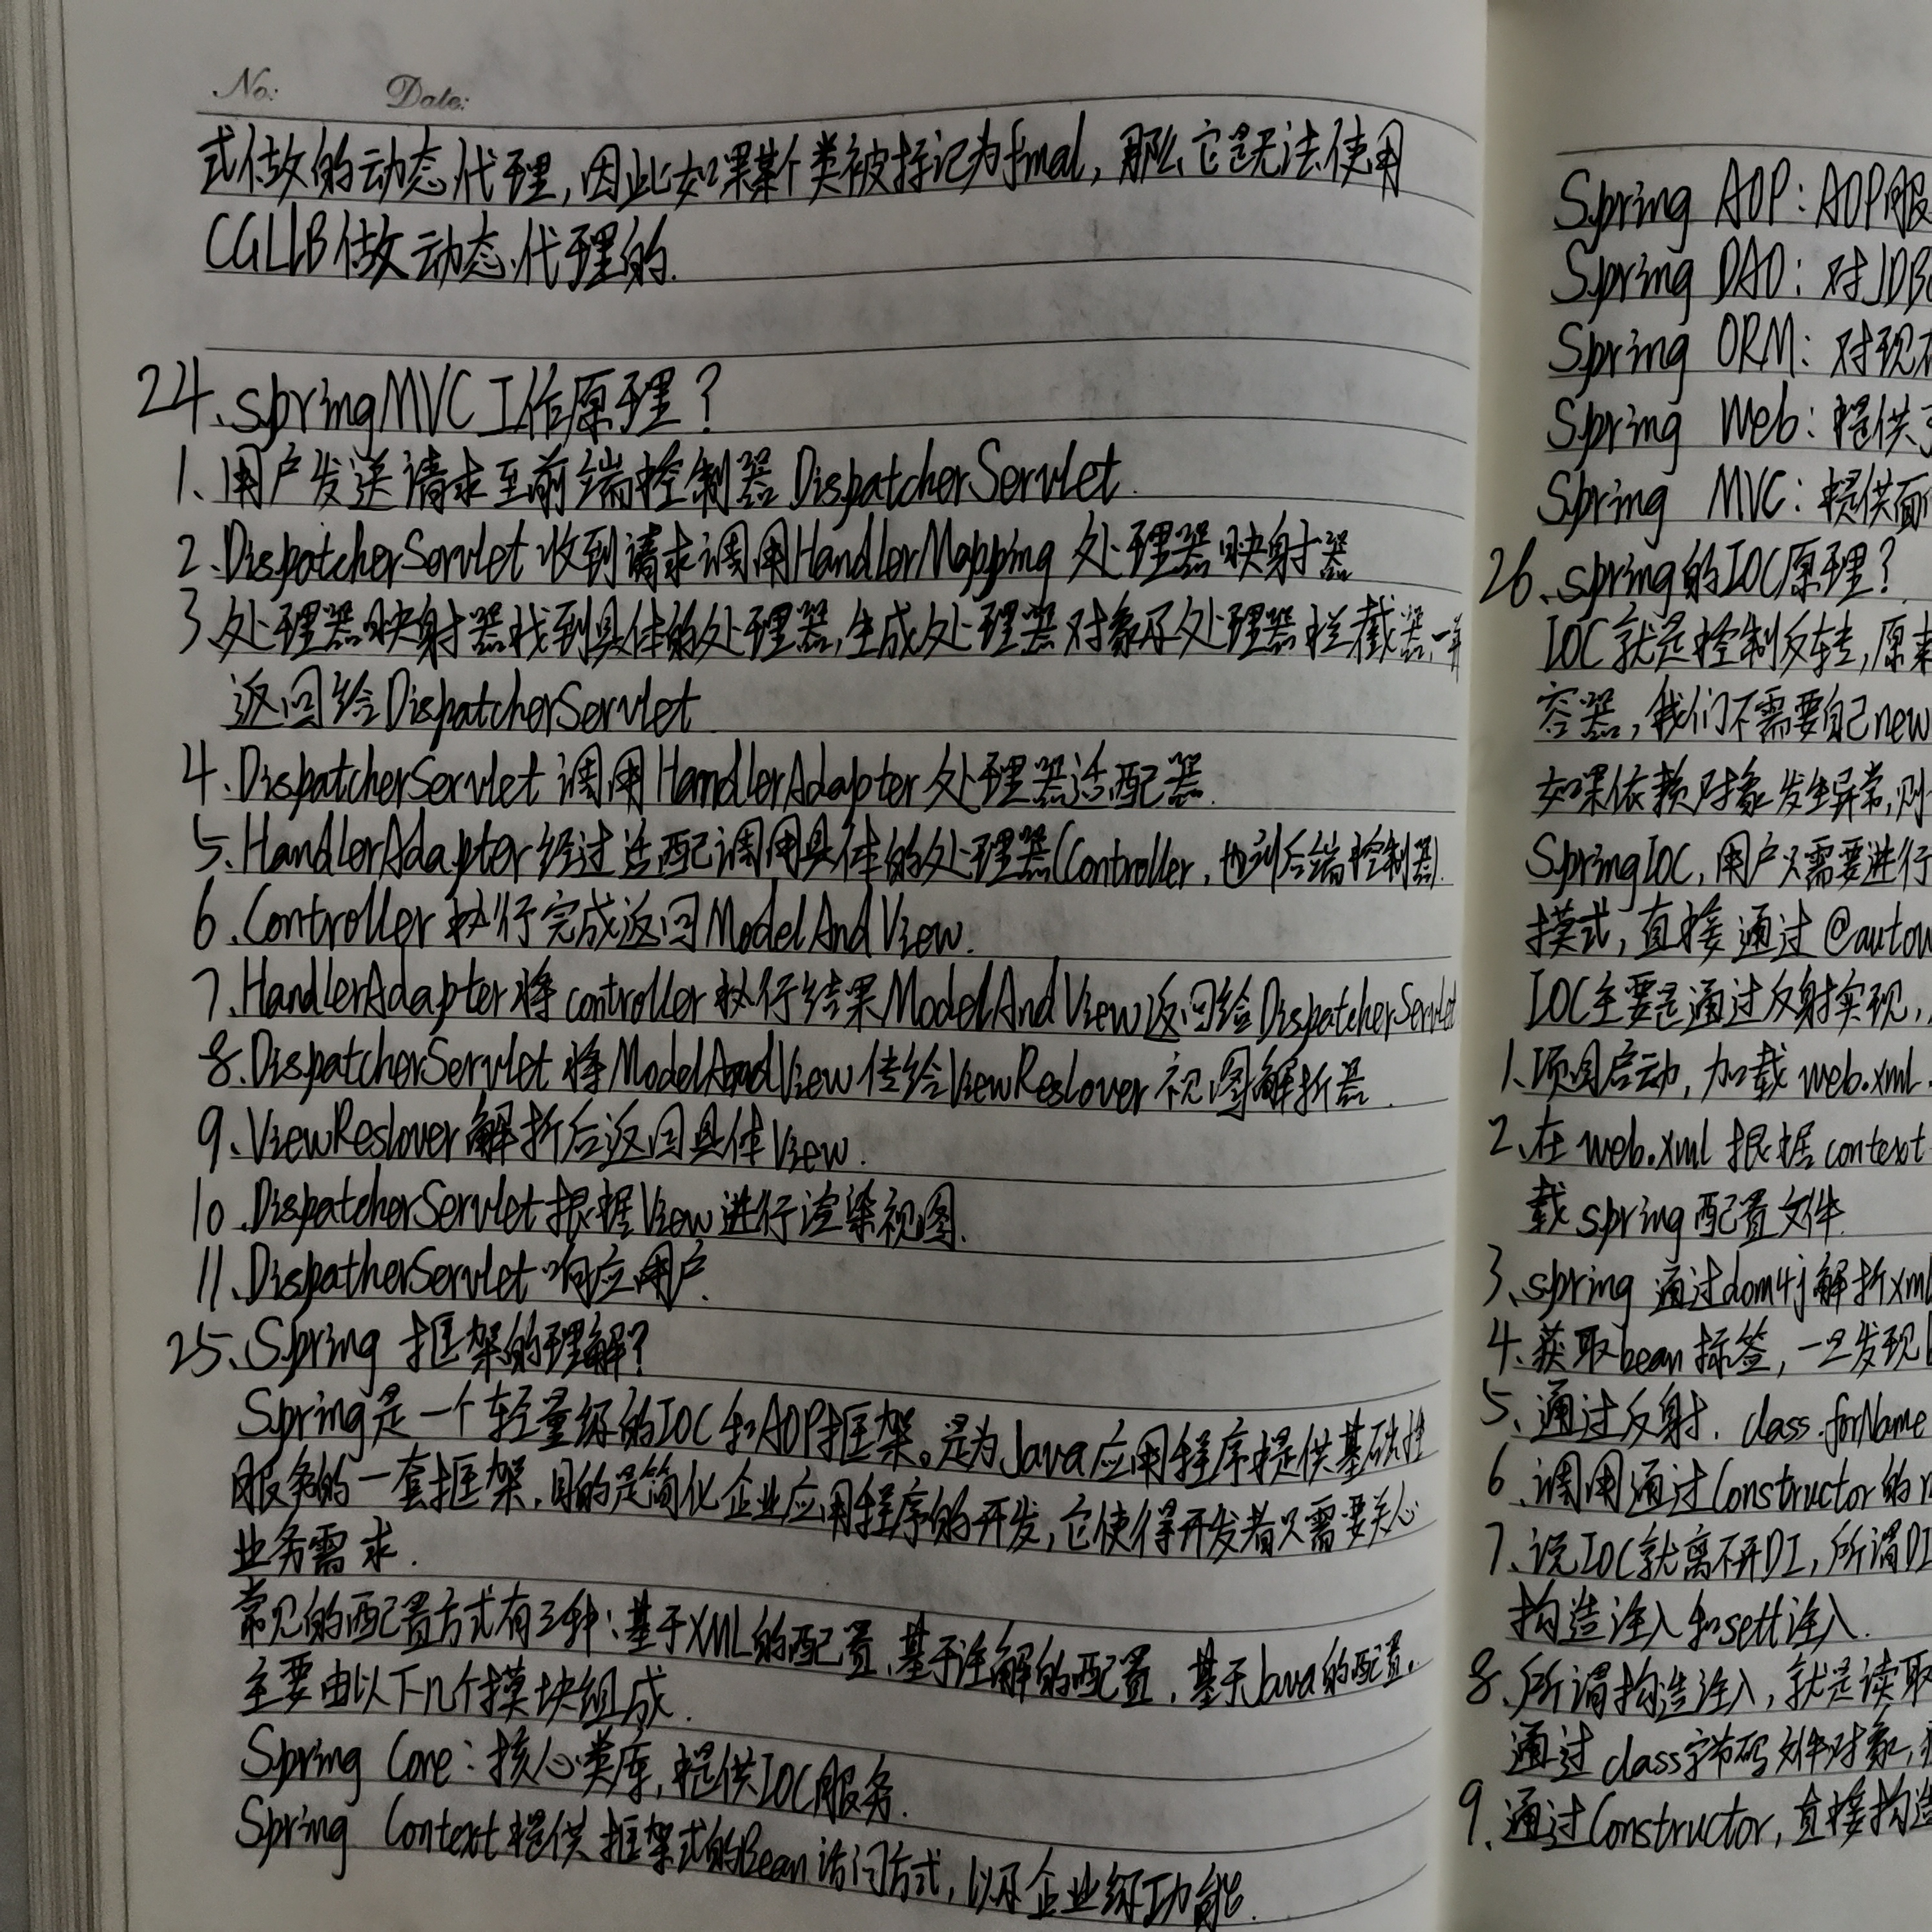 No: Date:
式做的动态代理,因此如果某个类被标记为final,那么它是无法使用
CGLIB做动态代理的.
24、springMVC工作原理?
1、用户发送请求至前端控制器DispatcherServlet.
2、DispatcherServlet收到请求调用HandlerMapping处理器映射器
3、处理器映射器找到具体的处理器,生成处理器对象及处理器拦截器,一并
返回给DispatcherServlet
4、DispatcherServlet调用HandlerAdapter处理器适配器.
5、HandlerAdapter经过适配调用具体的处理器(Controller,也叫后端控制器).
6、Controller执行完成返回ModelAndView.
7、HandlerAdapter将controller执行结果ModelAndView返回给DispatcherServlet
8、DispatcherServlet将ModelAndView传给ViewReslover视图解析器.
9、ViewReslover解析后返回具体View.
10、DispatcherServlet根据View进行渲染视图.
11、DispatherServlet响应用户.
25、Spring 框架的理解?
Spring是一个轻量级的IOC和AOP框架。是为Java应用程序提供基础性
服务的一套框架,目的是简化企业应用程序的开发,它使得开发者只需要关心
业务需求.
常见的配置方式有三种:基于XML的配置、基于注解的配置、基于Java的配置.
主要由以下几个模块组成.
Spring Core:核心类库,提供IOC服务.
Spring Context提供框架式的Bean访问方式,以及企业级功能.
Spring AOP:AOP服
Spring DAO:对JDB
Spring ORM:对现
Spring Web:提供
Spring MVC:提供面
26、spring的IOC原理?
IOC就是控制反转,原来
容器,我们不需要自己new
如果依赖对象发生异常,则
SpringIOC,用户只需要进行
模式,直接通过@autow
IOC主要是通过反射实现,
1、项目启动,加载web.xml
2、在web.xml根据context
载spring配置文件
3、spring通过dom4j解析xml
4、获取bean标签,一旦发现b
5、通过反射.class.forName
6、调用通过Constructor的n
7、说IOC就离不开DI,所谓DI
构造注入和sett注入.
8、所谓构造注入,就是读取
通过class字节码文件对象,
9、通过Constructor,直接构造